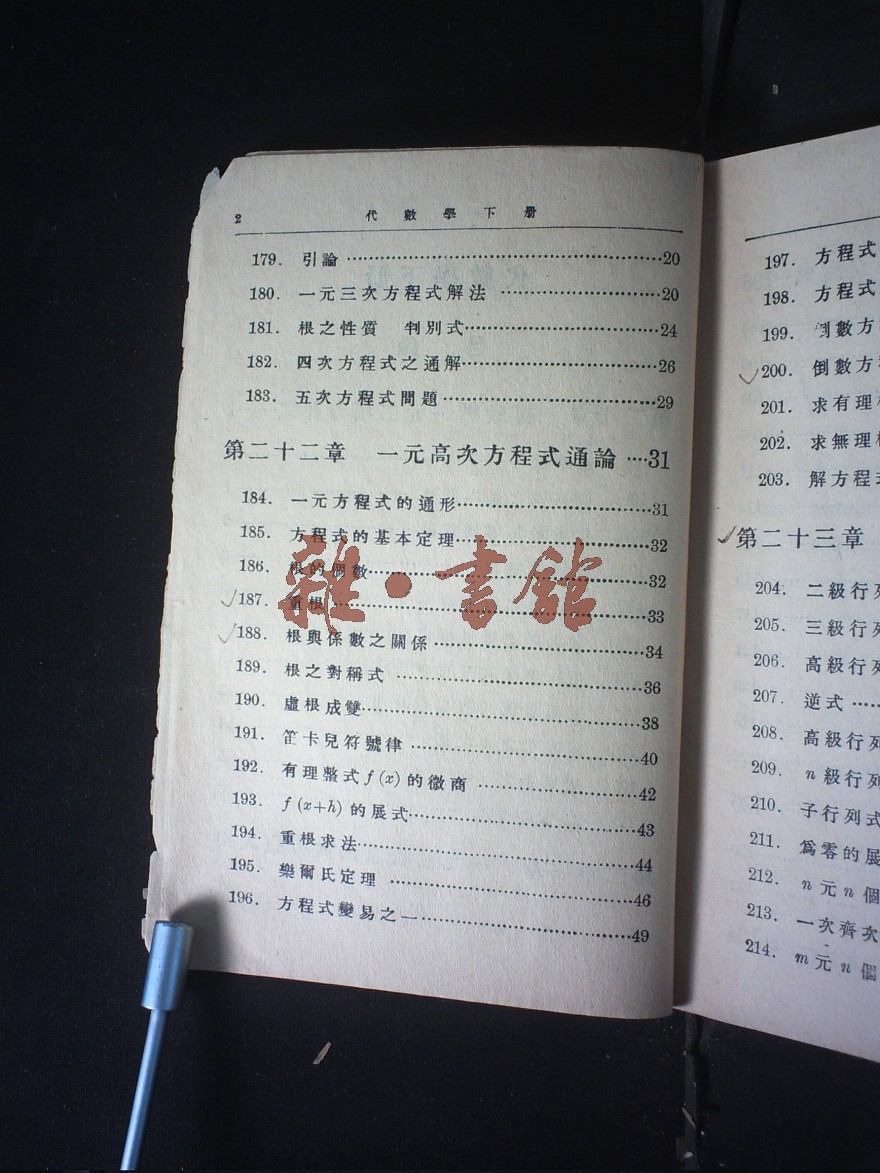 2 代數學下册
179. 引論 ……20
180. 一元三次方程式解法 ……20
181. 根之性質 判別式……24
182. 四次方程式之通解……26
183. 五次方程式問題……29
第二十二章 一元高次方程式通論……31
184. 一元方程式的通形……31
185. 方程式的基本定理……32
186. 根的個數……32
187. 重根……33
188. 根與係數之關係……34
189. 根之對稱式……36
190. 虛根成雙……38
191. 笛卡兒符號律……40
192. 有理整式 f(x) 的微商……42
193. f(x+h) 的展式……43
194. 重根求法……44
195. 樂爾氏定理……46
196. 方程式變易之一……49
雜·書館
197. 方程式
198. 方程式
199. 倒數方
200. 倒數方
201. 求有理
202. 求無理
203. 解方程
第二十三章
204. 二級行
205. 三級行
206. 高級行
207. 逆式……
208. 高級行
209. n級行
210. 子行列式
211. 爲零的展
212. n元n個
213. 一次齊次
214. m元n個